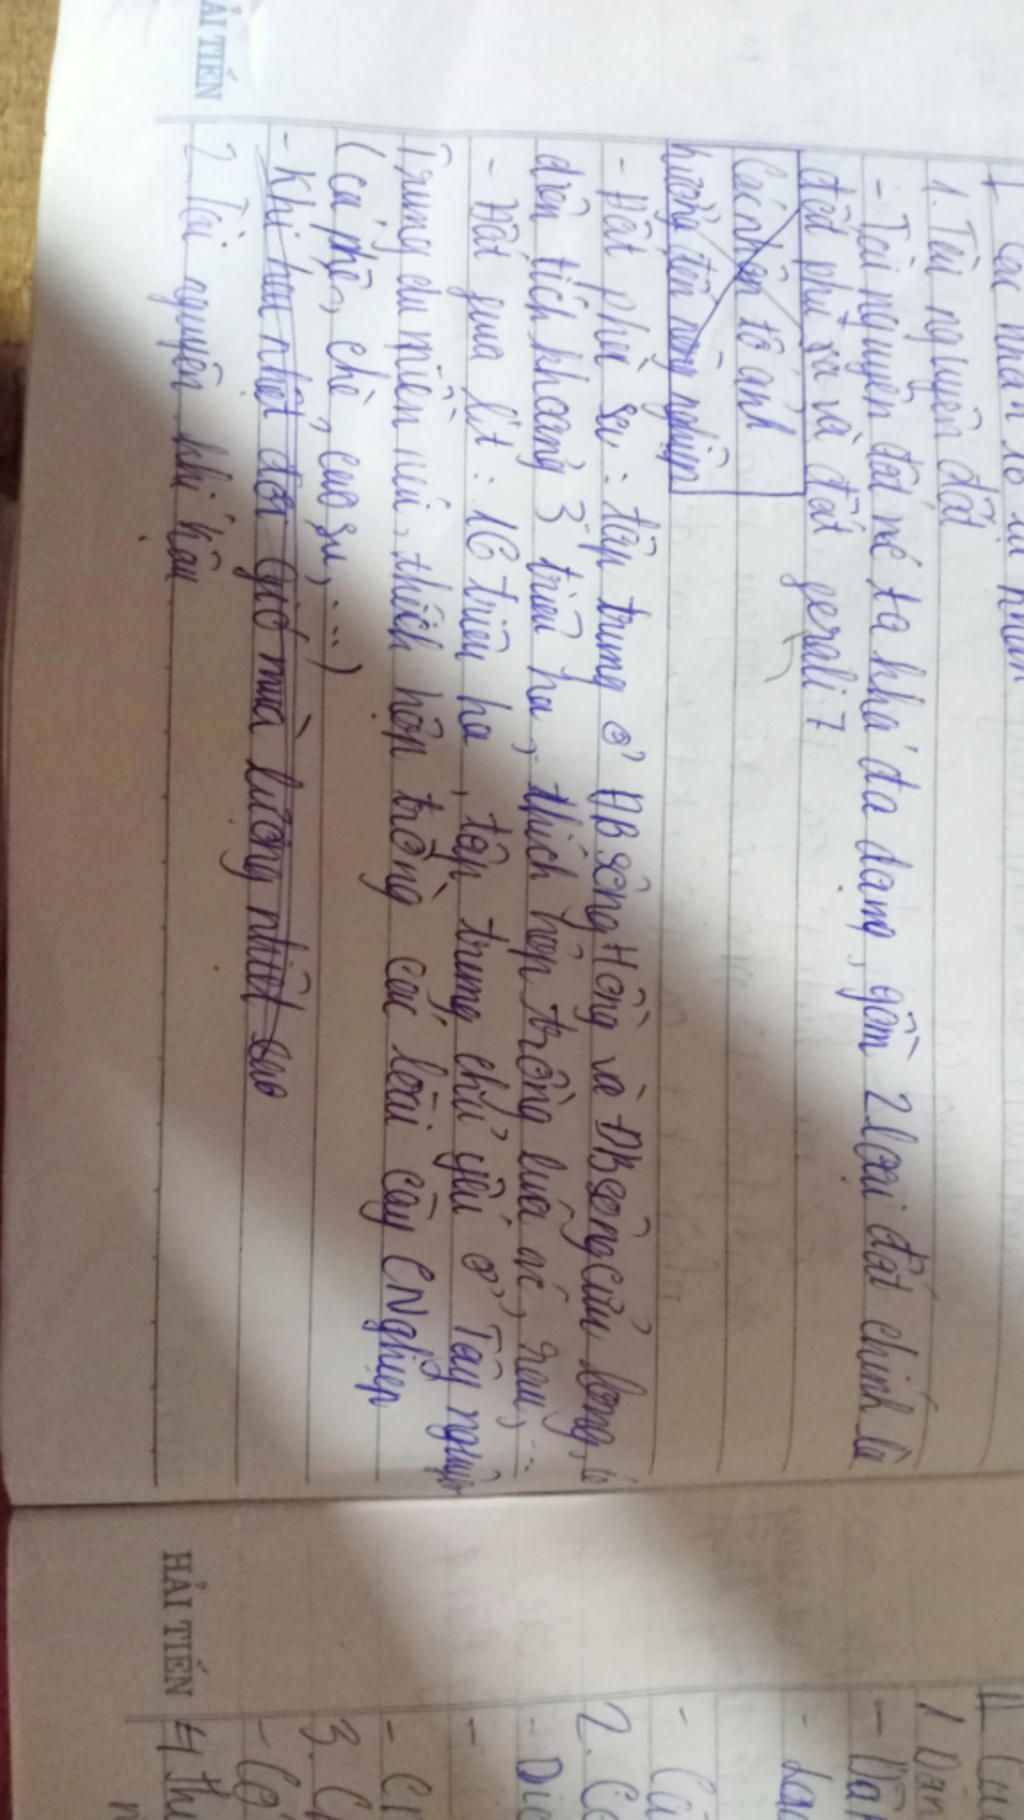 I. Các nhân tố tự nhiên
1. Tài nguyên đất
- Tài nguyên đất nc ta khá đa dạng, gồm 2 loại đất chính là
đất phù sa và đất feralit
Các nhân tố ảnh
hưởng đến nông nghiệp
- Đất phù sa: tập trung ở ĐB sông Hồng và ĐB sông Cửu Long, có
diện tích khoảng 3 triệu ha, thích hợp trồng lúa nc, rau, ...
- Đất feralit: 16 triệu ha, tập trung chủ yếu ở Tây nguyên
Trung du miền núi, thích hợp trồng các loài cây CNghiệp
(cà phê, chè, cao su, ...)
- Khí hậu nhiệt đới gió mùa lượng nhiệt cao
2. Tài nguyên khí hậu
ẢI TIẾN
HẢI TIẾN
II. Các
1. Dân
- Dân
-
- Cà
2. Cơ
-
-
-
3.
-
4. Thị